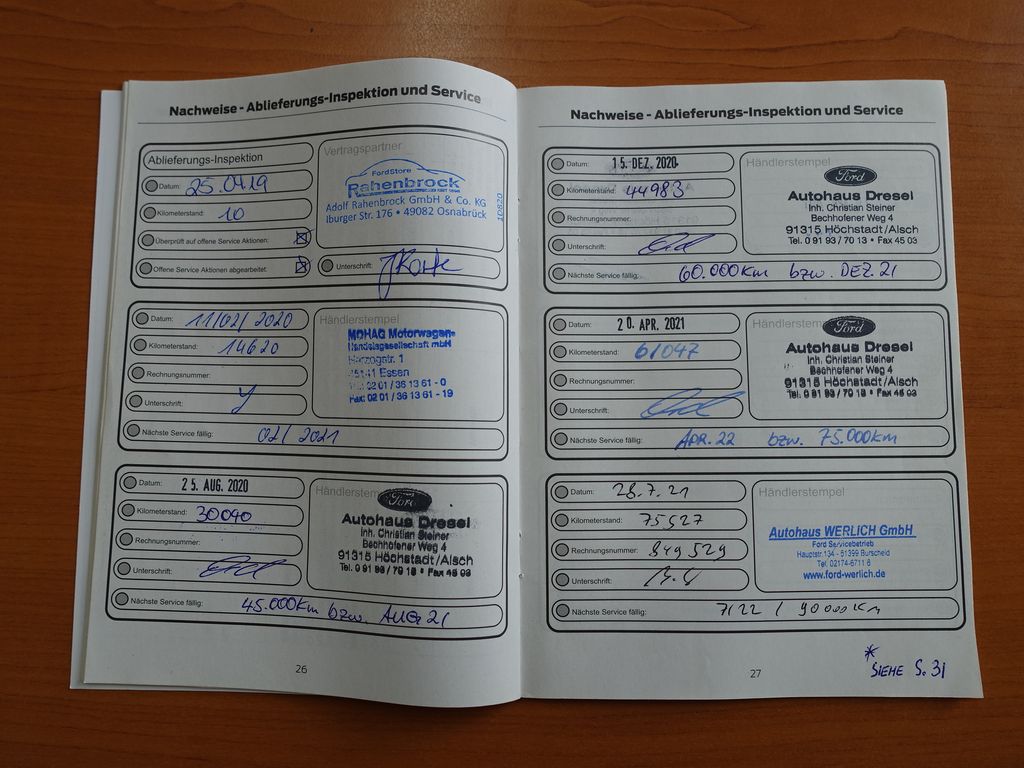 Nachweise - Ablieferungs-Inspektion und Service
Ablieferungs-Inspektion
Datum: 25.04.19
Kilometerstand: 10
Überprüft auf offene Service Aktionen: ☒
Offene Service Aktionen abgearbeitet: ☒
Vertragspartner
FordStore
Rahenbrock
Adolf Rahenbrock GmbH & Co. KG
Iburger Str. 176 • 49082 Osnabrück
Unterschrift:
Datum: 11/02/2020
Kilometerstand: 14620
Rechnungsnummer:
Unterschrift:
Nächste Service fällig: 02/2021
Händlerstempel
MOHAG Motorwagen-
Handelsgesellschaft mbH
Herzogstr. 1
45141 Essen
Tel.: 02 01 / 36 13 61 - 0
Fax: 02 01 / 36 13 61 - 19
Datum: 25. AUG. 2020
Kilometerstand: 30090
Rechnungsnummer:
Unterschrift:
Nächste Service fällig: 45.000km bzw. AUG 21
Händlerstempel
Ford
Autohaus Dresel
Inh. Christian Steiner
Bechhofener Weg 4
91315 Höchstadt/Aisch
Tel. 0 91 93 / 70 13 • Fax 45 03
26
Nachweise - Ablieferungs-Inspektion und Service
Datum: 15. DEZ. 2020
Kilometerstand: 44983
Rechnungsnummer:
Unterschrift:
Nächste Service fällig: 60.000km bzw. DEZ. 21
Händlerstempel
Ford
Autohaus Dresel
Inh. Christian Steiner
Bechhofener Weg 4
91315 Höchstadt/Aisch
Tel. 0 91 93 / 70 13 • Fax 45 03
Datum: 20. APR. 2021
Kilometerstand: 61047
Rechnungsnummer:
Unterschrift:
Nächste Service fällig: APR. 22 bzw. 75.000km
Händlerstempel
Ford
Autohaus Dresel
Inh. Christian Steiner
Bechhofener Weg 4
91315 Höchstadt/Aisch
Tel. 0 91 93 / 70 13 • Fax 45 03
Datum: 28.7.21
Kilometerstand: 75527
Rechnungsnummer: 849529
Unterschrift:
Nächste Service fällig: 7/22 / 90000 KM
Händlerstempel
Autohaus WERLICH GmbH
Ford Servicebetrieb
Hauptstr.134 - 51399 Burscheid
Tel. 02174-6711 6
www.ford-werlich.de
27
*
SIEHE S. 31